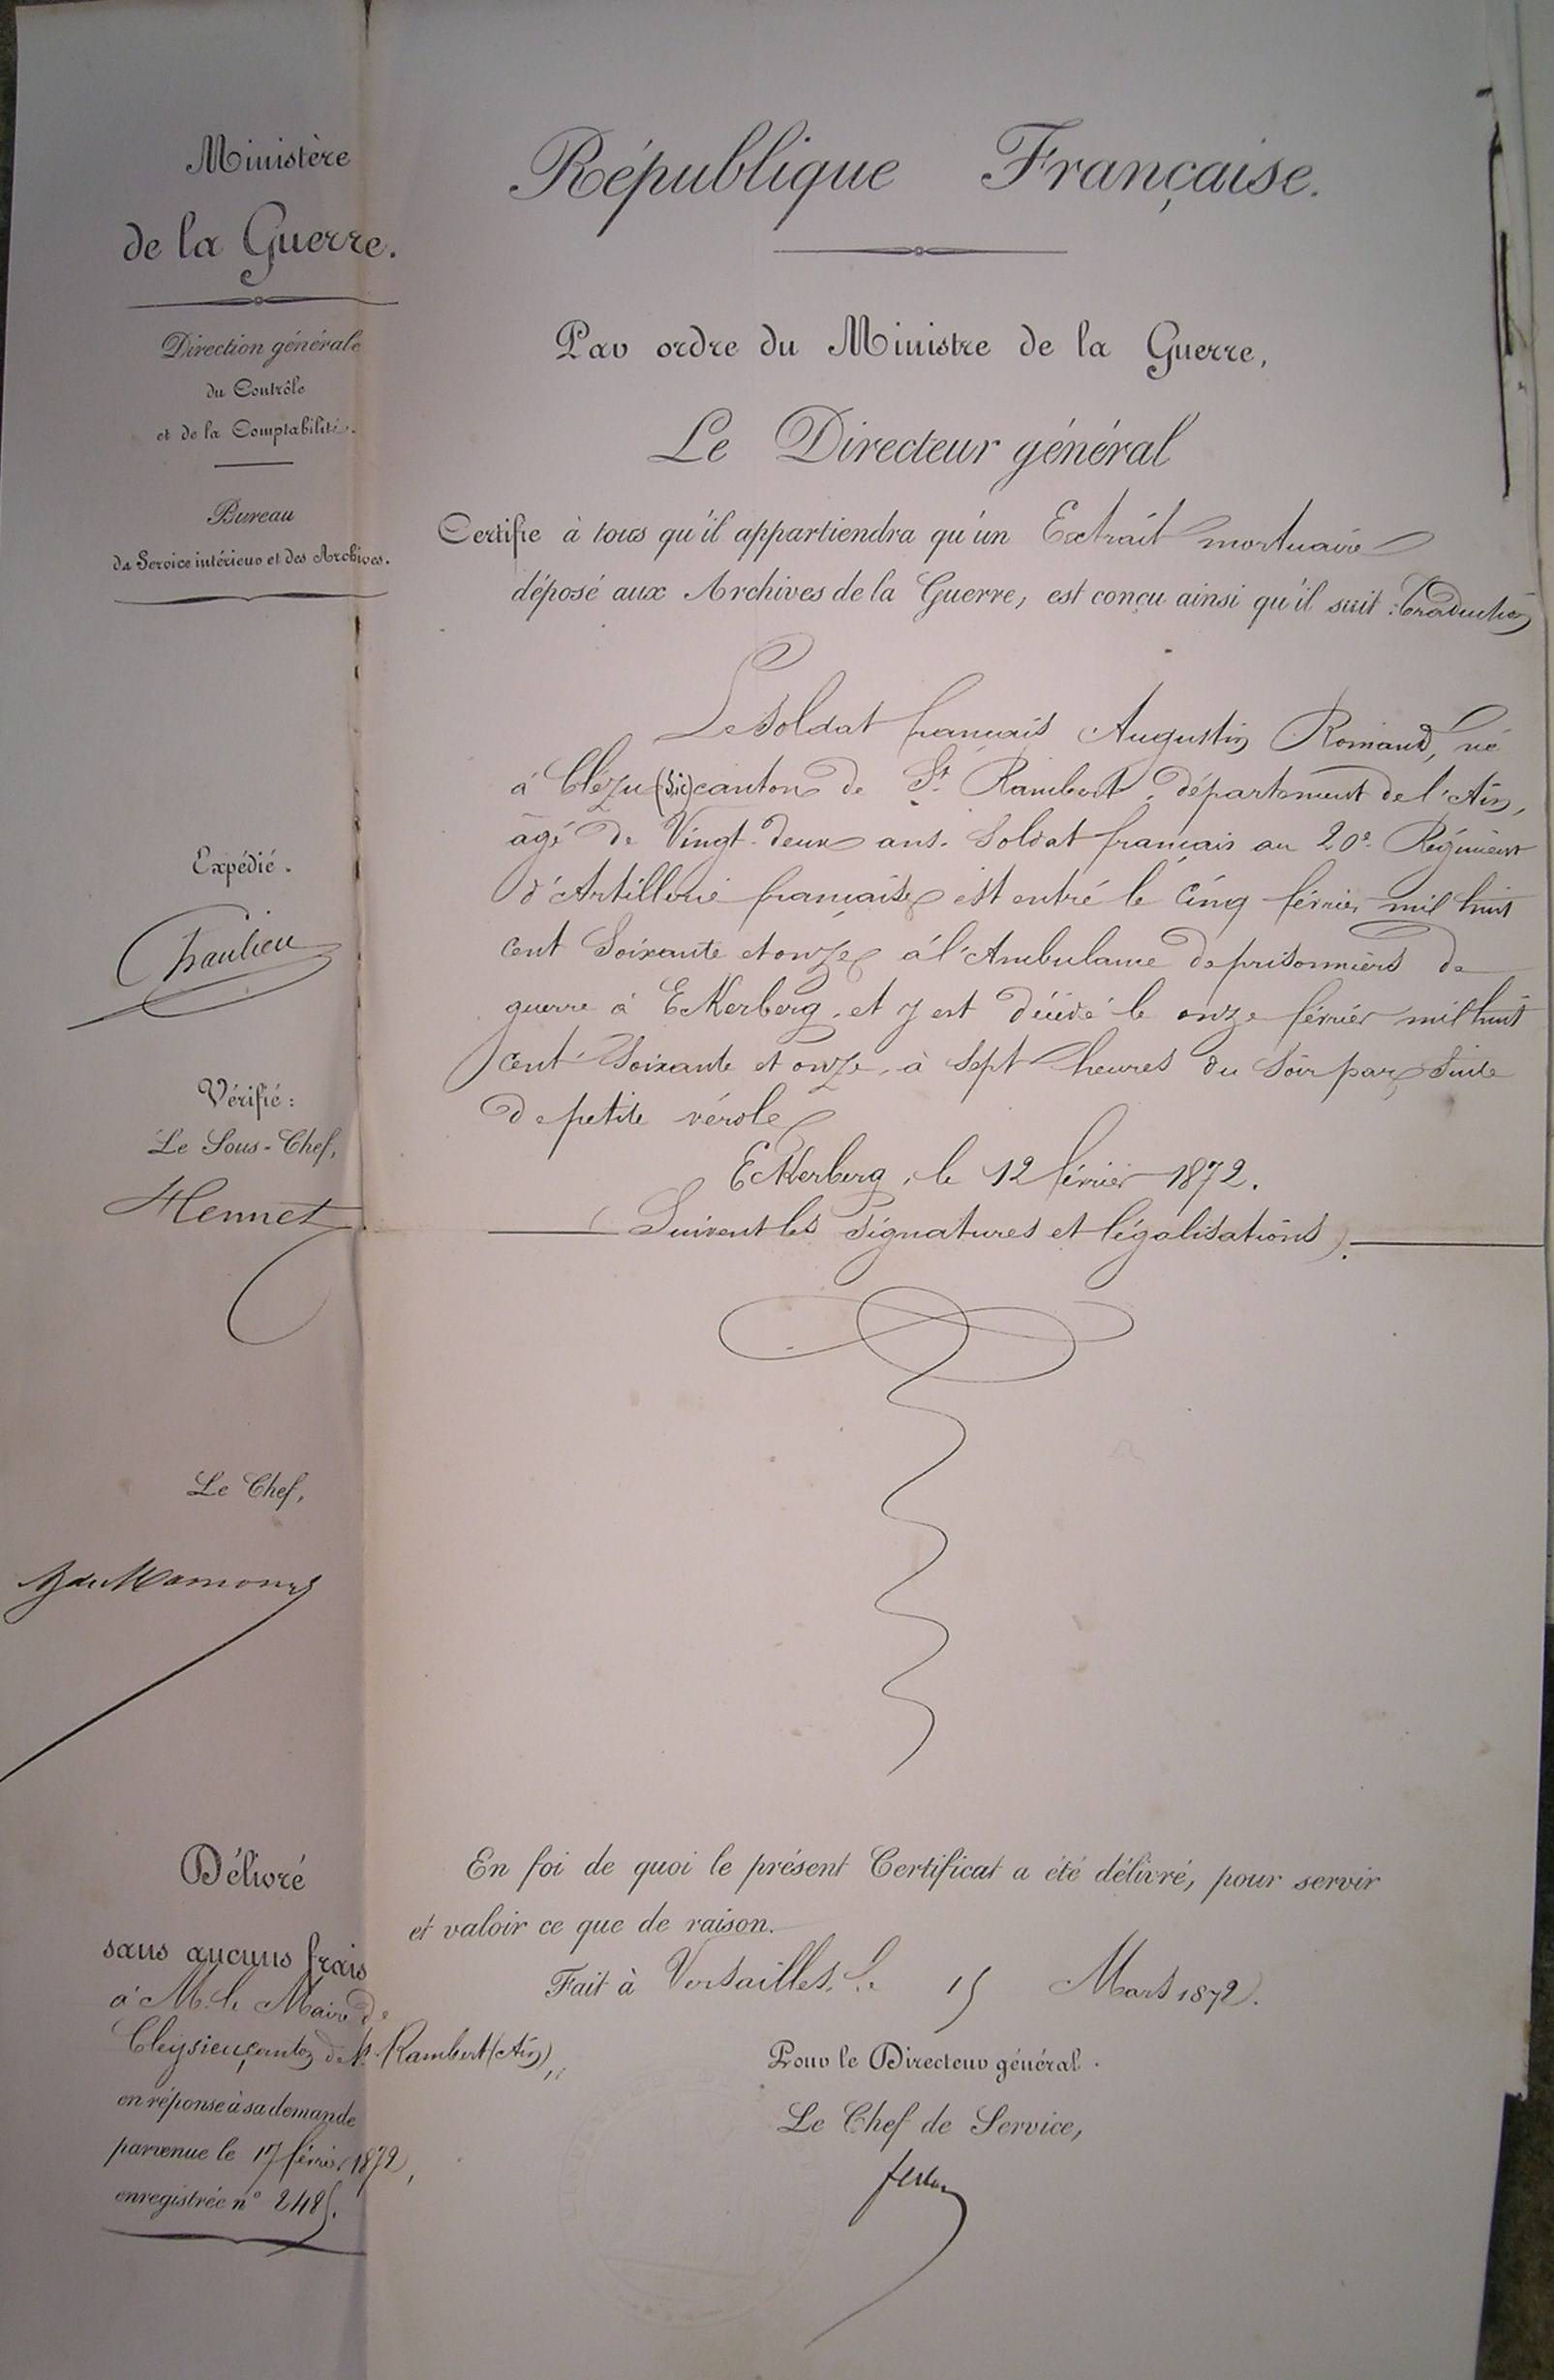 Ministère
de la Guerre.
Direction générale
du Contrôle
et de la Comptabilité.
Bureau
du Service intérieur et des Archives.
République Française.
Par ordre du Ministre de la Guerre,
Le Directeur général
Certifie à tous qu'il appartiendra qu'un Extrait mortuaire
déposé aux Archives de la Guerre, est conçu ainsi qu'il suit : Traduction
Le soldat français Augustin Romand, né
à Clézu (sic) canton de St. Rambert, département de l'Ain,
âgé de Vingt-deux ans. Soldat français au 20e. Régiment
d'Artillerie française est entré le cinq février mil huit
cent soixante et onze à l'Ambulance de prisonniers de
guerre à Ekerberg, et y est décédé le onze février mil huit
cent soixante et onze, à sept heures du soir par suite
de petite vérole
Ekerberg, le 12 février 1872.
(Suivent les signatures et légalisations).
Expédié.
Chaulieu
Vérifié :
Le Sous-Chef,
Hennet
Le Chef,
Délivré
sans aucuns frais
à M. le Maire de
Cleysieu, canton de St. Rambert (Ain),
en réponse à sa demande
parvenue le 17 février 1872,
enregistrée n° 2485.
En foi de quoi le présent Certificat a été délivré, pour servir
et valoir ce que de raison.
Fait à Versailles, le 15 Mars 1872.
Pour le Directeur général.
Le Chef de Service,